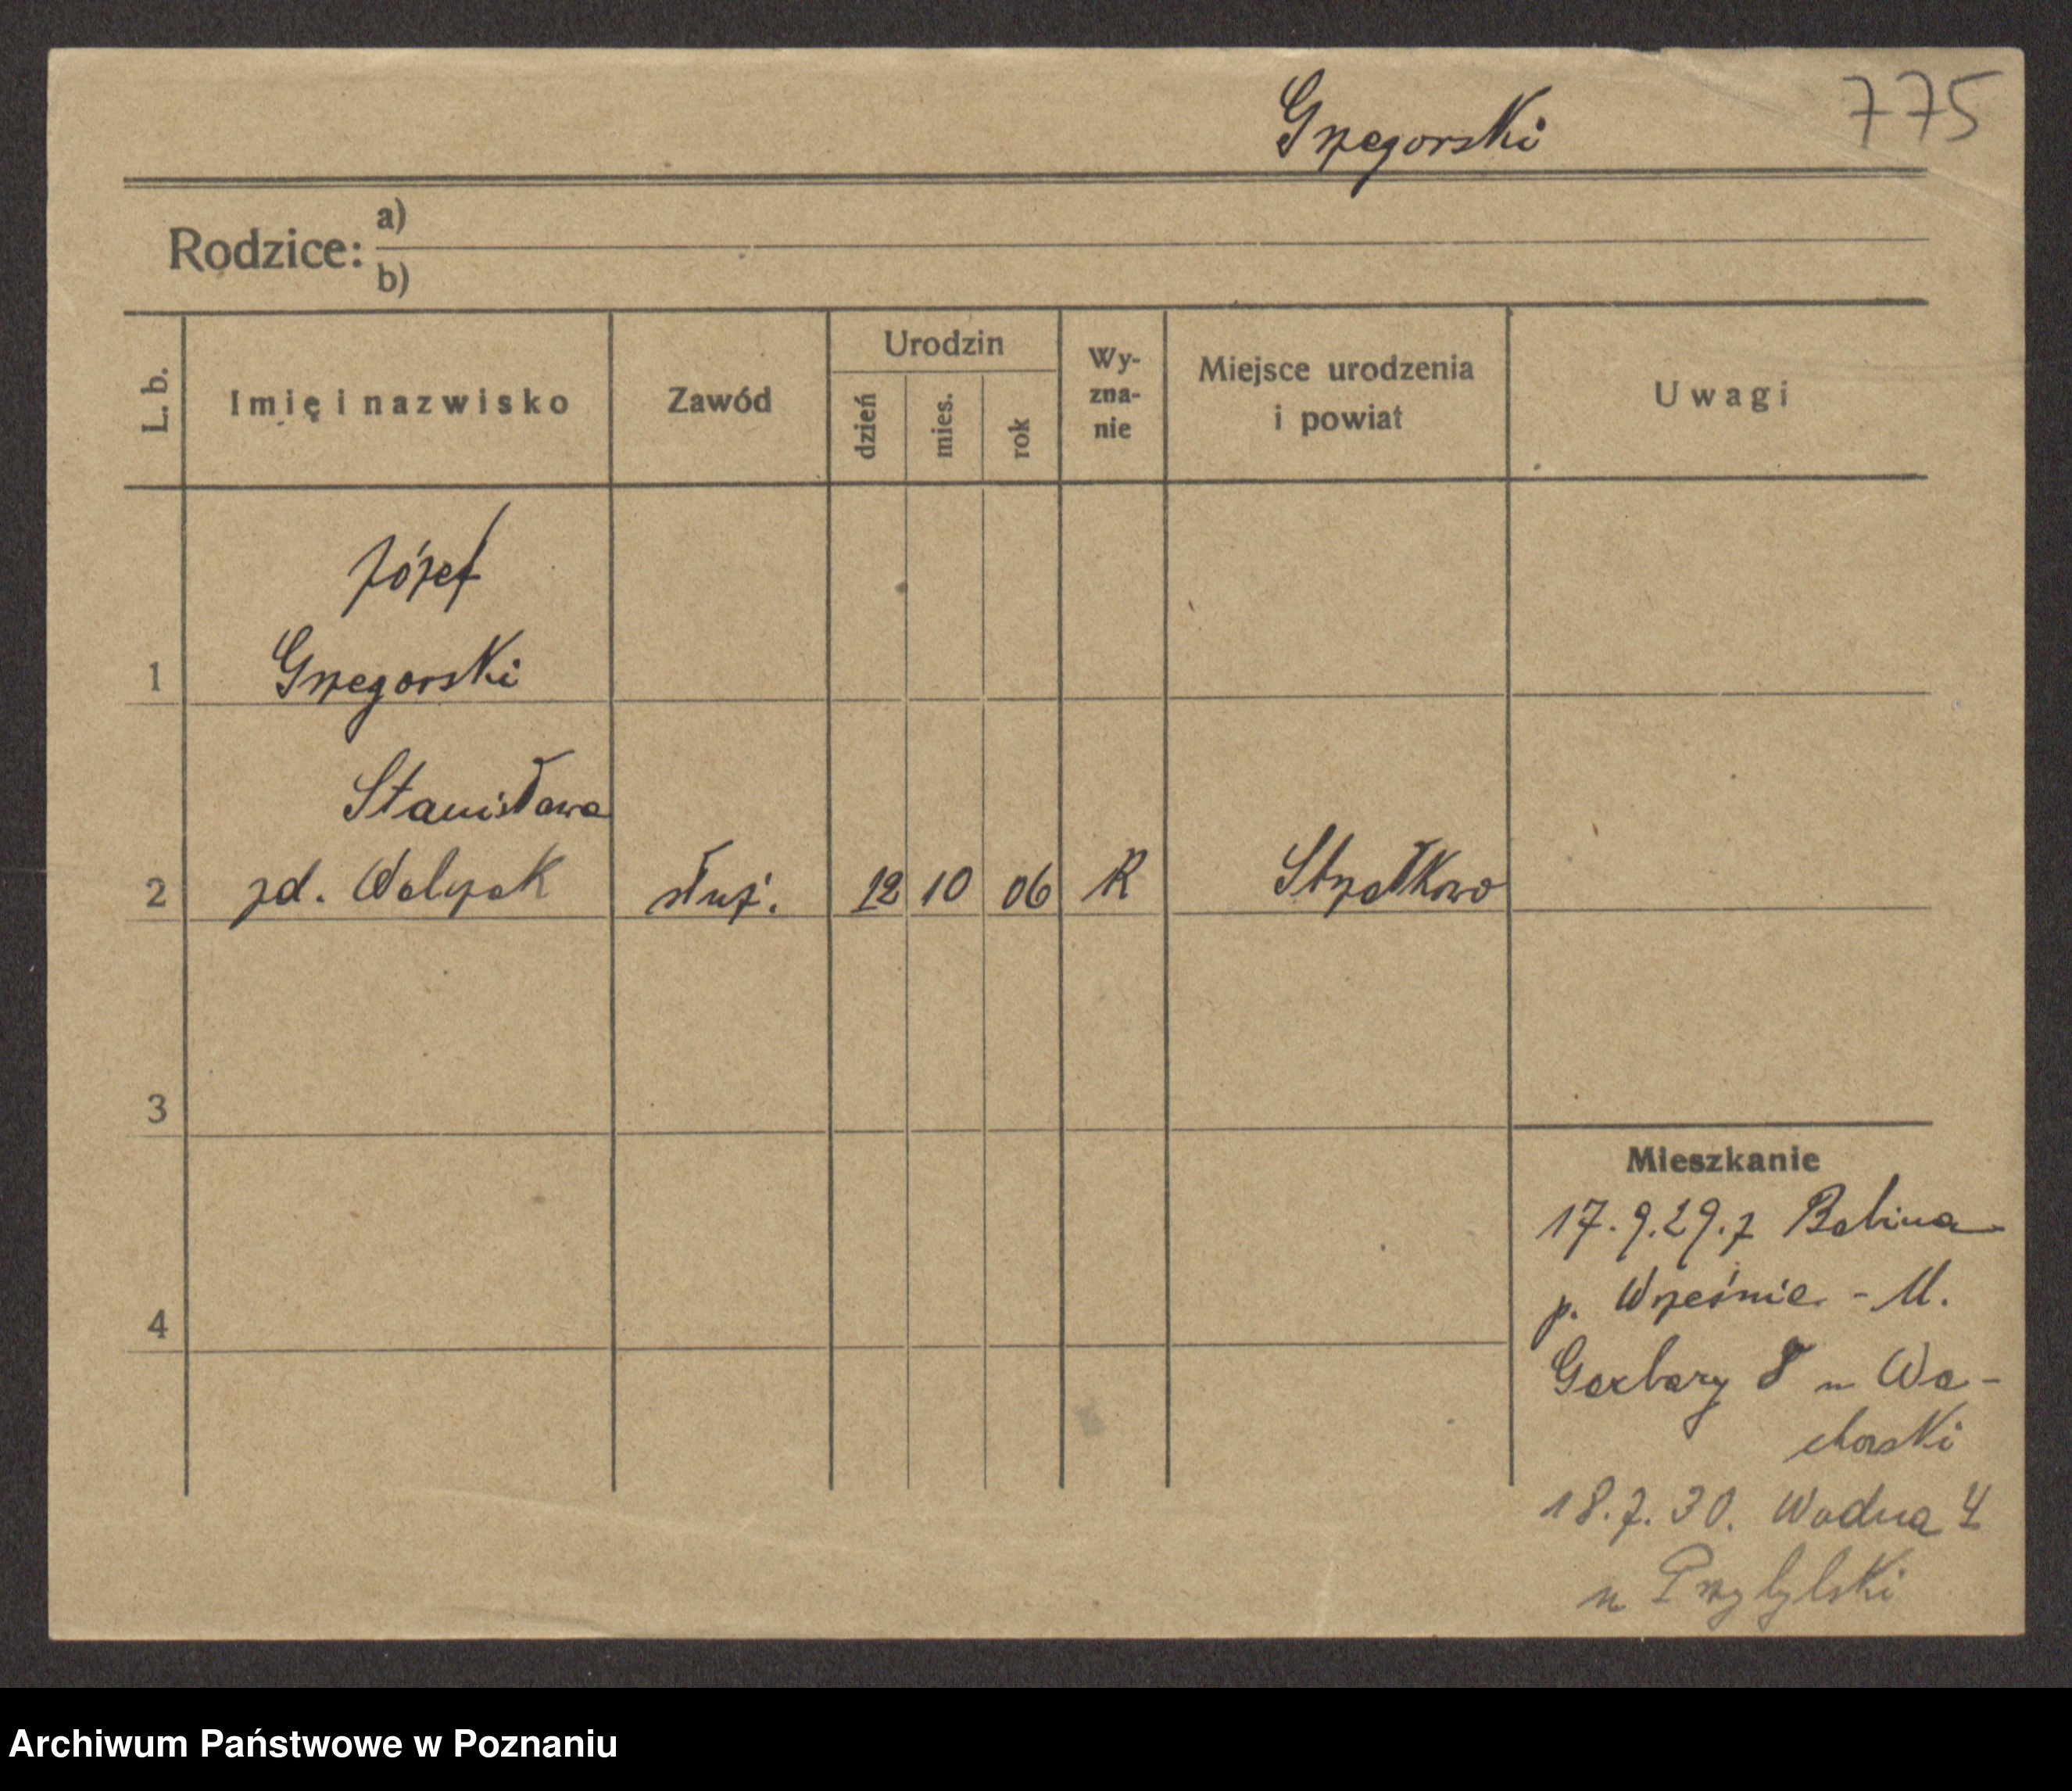 Grzegorski 775
Rodzice: a)
b)
L. b. Imię i nazwisko Zawód Urodzin dzień mies. rok Wy-zna-nie Miejsce urodzenia i powiat Uwagi
Józef
1 Grzegorski
Stanisława
2 zd. Walczak służ. 12 10 06 R Strzałkowo
3
Mieszkanie
17.9.29. z Babina
p. Wrześnie - M.
4
Garbary 8 u Wa-
chorski
18.7.30. Wodna 4
u Przybylski
Archiwum Państwowe w Poznaniu